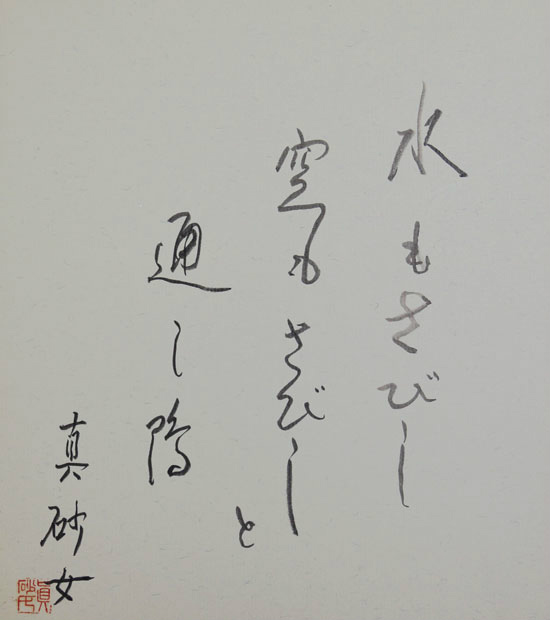 水もさびし
空もさびしと
通し鴨
真砂女
眞砂女